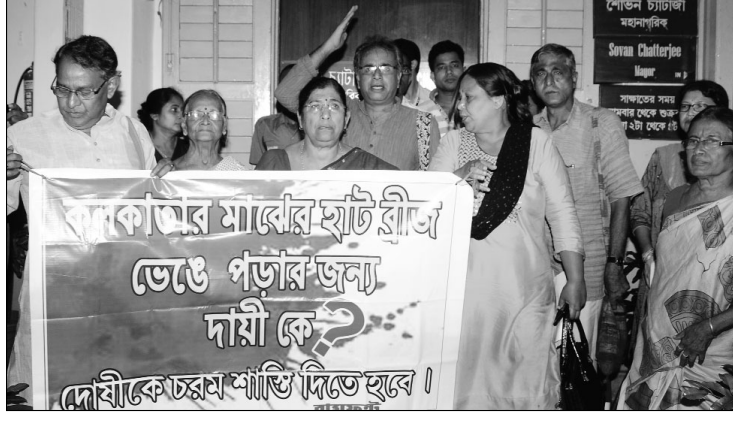 শোভন চ্যাটার্জী
মহানাগরিক
Sovan Chatterjee
Mayor
সাক্ষাতের সময়
কলকাতার মাঝের হাট ব্রীজ
ভেঙে পড়ার জন্য
দায়ী কে ?
দোষীকে চরম শাস্তি দিতে হবে ।
বামফ্রন্ট